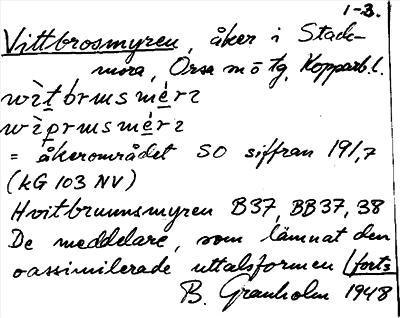 1-3.
Vittbrosmyren, åker i Stack-
mora, Orsa mö tg, Kopparb. l.
wìtbrusmérɩ
wìprusmérɩ
= åkerområdet SO siffran 191,7
(KG 103 NV)
Hvitbrunnsmyren B37, BB37, 38
De meddelare, som lämnat den
oassimilerade uttalsformen (forts
B. Granholm 1948